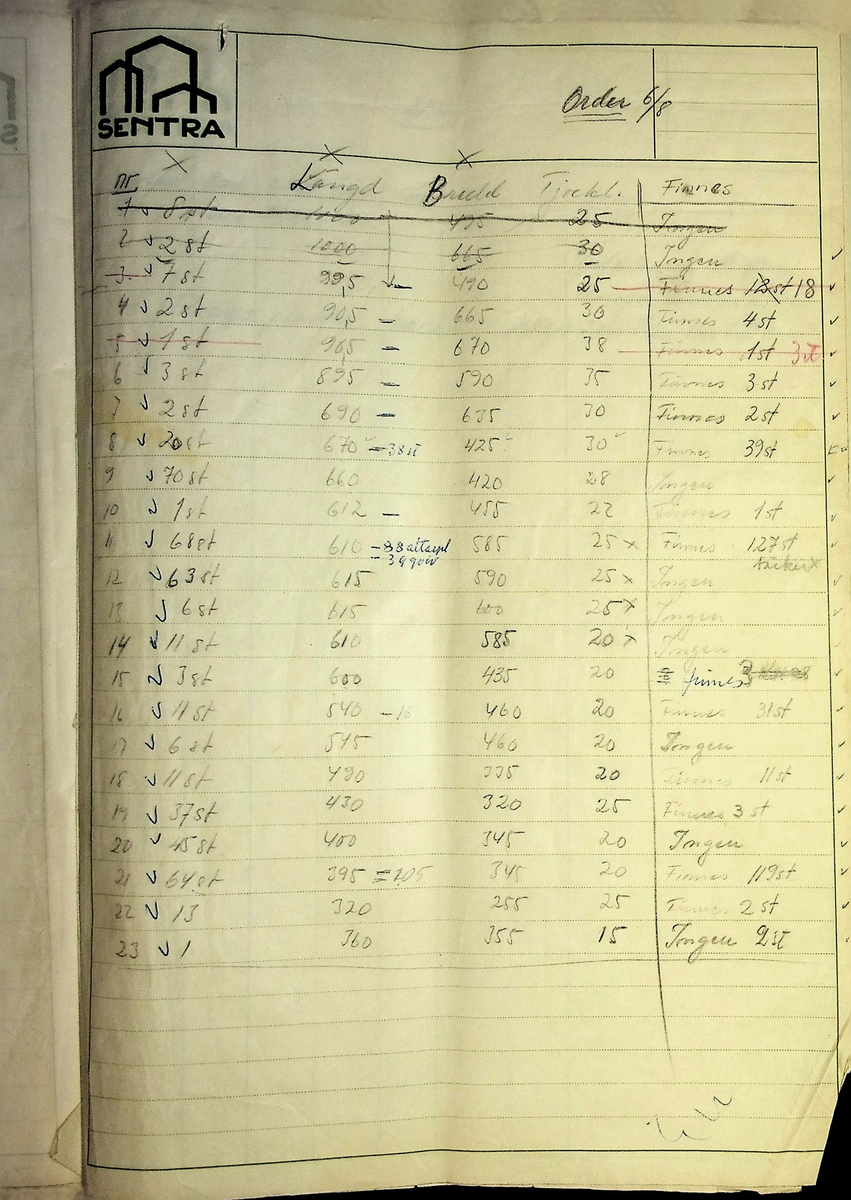 SENTRA
Order 6/8
nr. Längd Bredd Tjockl. Finnes
1 8 st 495 25 Ingen
2 2 st 1000 665 30 Ingen
3. 7 st 995 490 25 Finnes 18
4 2 st 905 - 665 30 Finnes 4 st
5 1 st 905 - 670 38 Finnes 1 st
6 3 st 895 - 590 35 Finnes 3 st
7 2 st 690 - 635 30 Finnes 2 st
8 20 st 670 = 38 st 425 30 Finnes 39 st
9 70 st 660 420 28 Ingen
10 1 st 612 - 455 22 Finnes 1 st
11 68 st 610 - 88 585 25 x Finnes 127 st
12 63 st 615 590 25 x Ingen
13 6 st 615 600 25 x Ingen
14 11 st 610 585 20 x Ingen
15 3 st 600 435 20 finnes
16 11 st 540 - 16 460 20 Finnes 31 st
17 6 st 545 460 20 Ingen
18 11 st 490 335 20 Finnes 11 st
19 37 st 430 320 25 Finnes 3 st
20 45 st 400 345 20 Ingen
21 64 st 395 345 20 Finnes 119 st
22 13 320 255 25 Finnes 2 st
23 1 360 355 15 Ingen 2 st